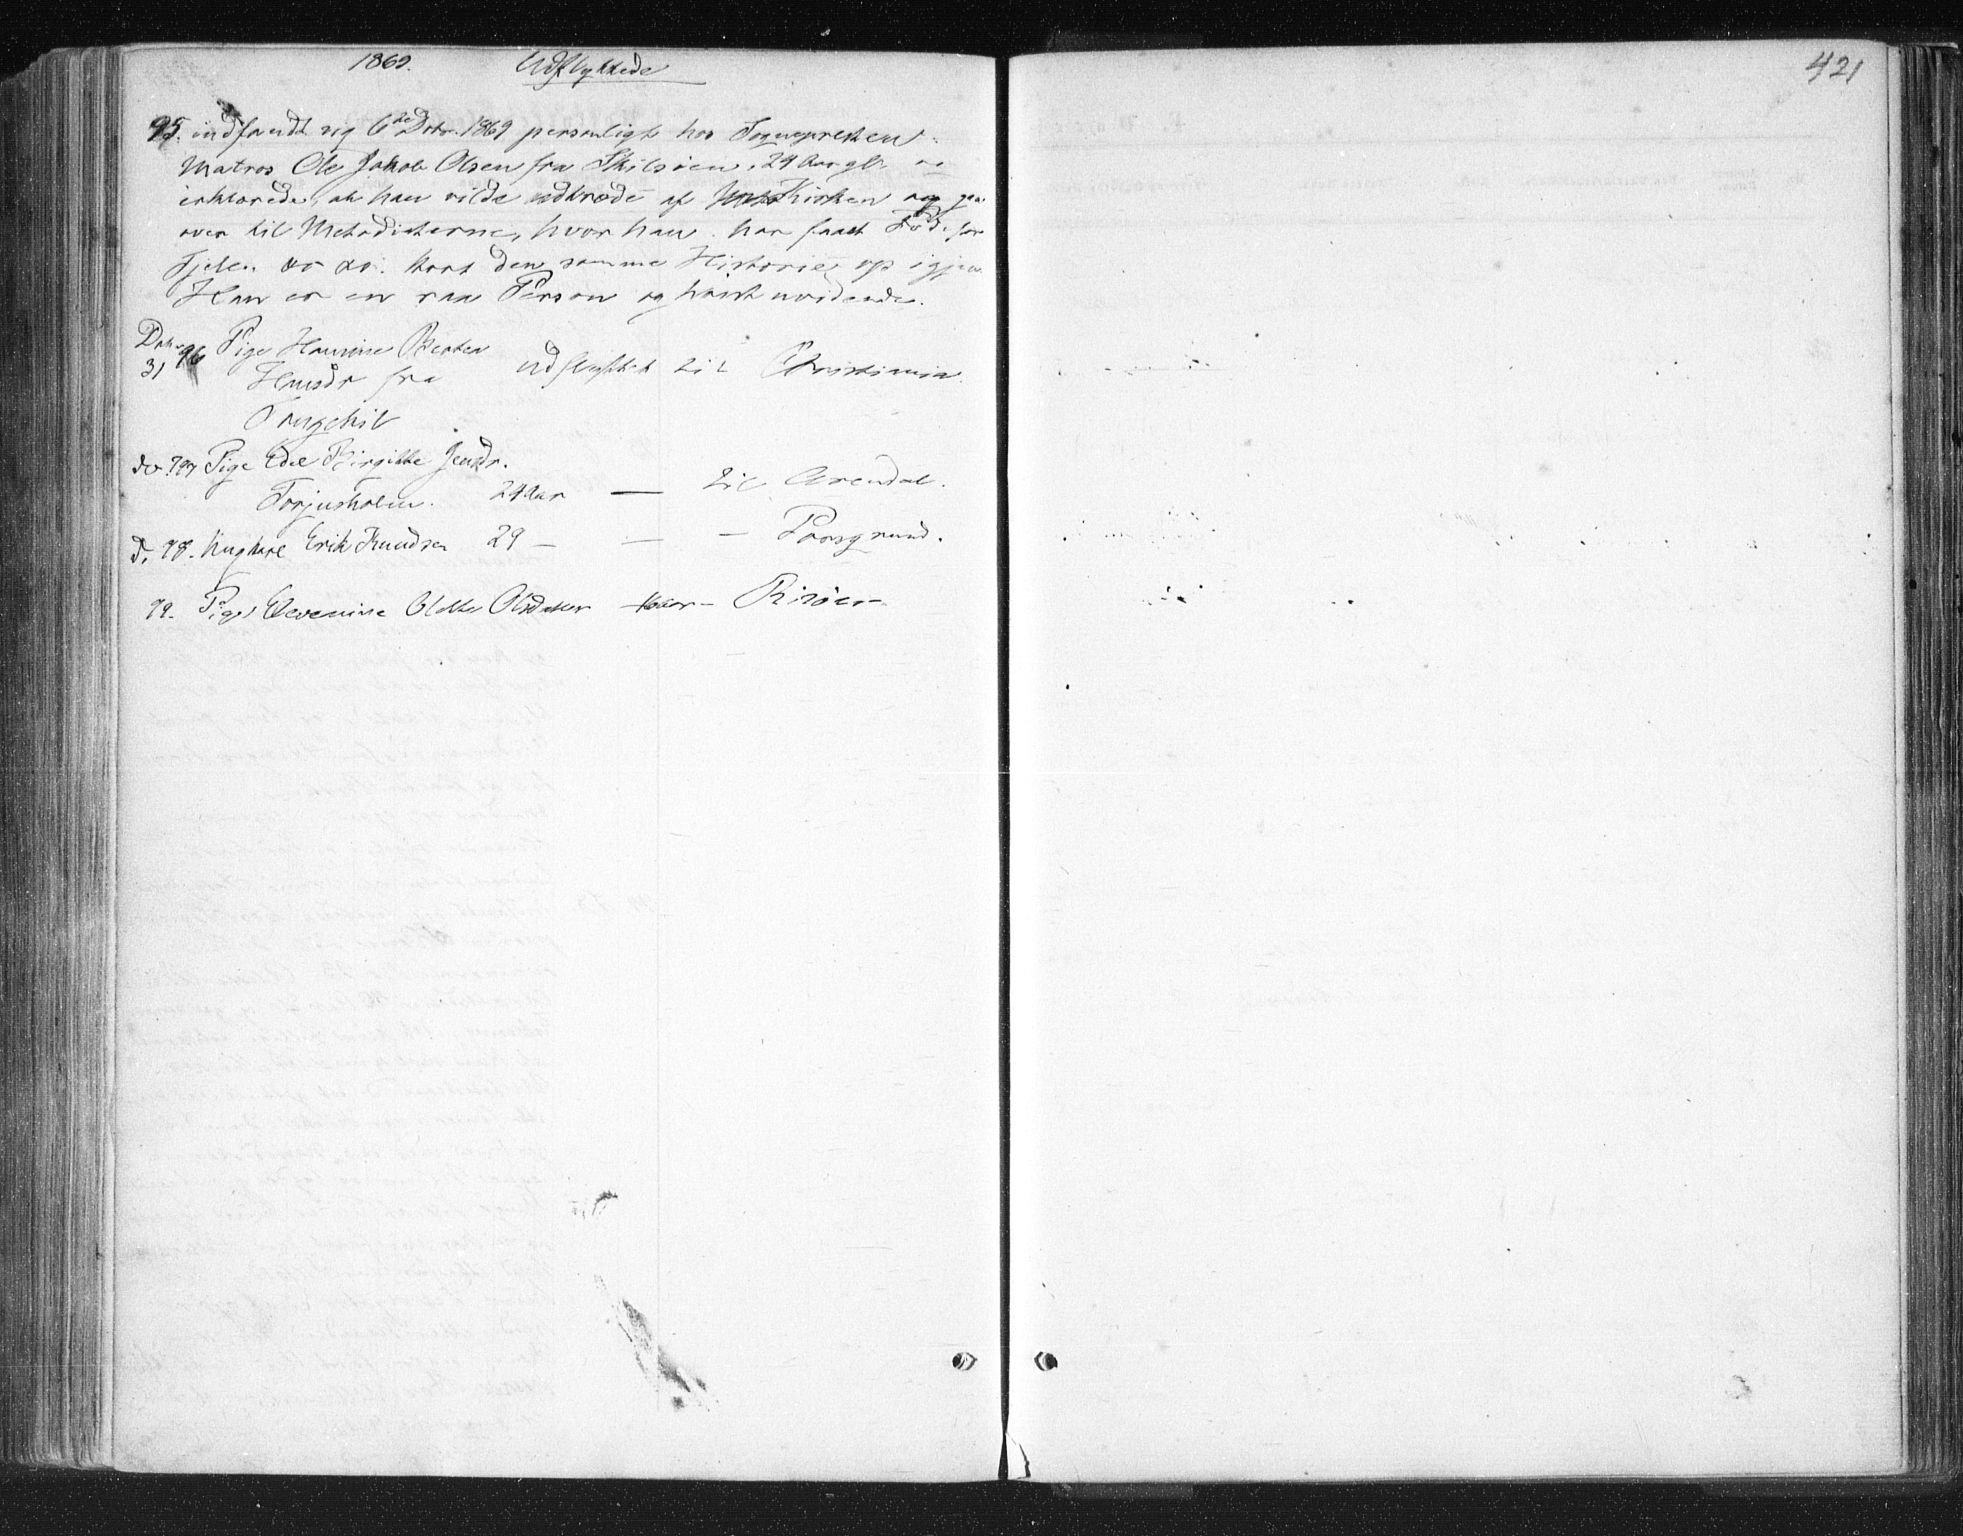 1869. Udflyttede
421
95. indfandt sig 6te Dcbr. 1869 personligt hos Sognepresten
Matros Ole Jakob Olsen fra Skilsøen, 24 Aar gl. og
erklærede, at han vilde udtræde af Kirken og gaa
over til Metodisterne, hvor han har faaet Føde for
Sjelen &c &c. kort den samme Historie op igjen.
Han er en raa Person og høist uvidende.
Dcbr 96 Pige Hansine
31 Hansdr fra udflyttet til Christiania.
do 97 Pige Edel Birgitte Jensdr.
Torjusholm. 24 Aar — til Arendal.
d. 98. Ungkarl Erik Knudsen 29 — — - Porsgrund.
99. Pige Severine Olette Olsdatter - Risøer